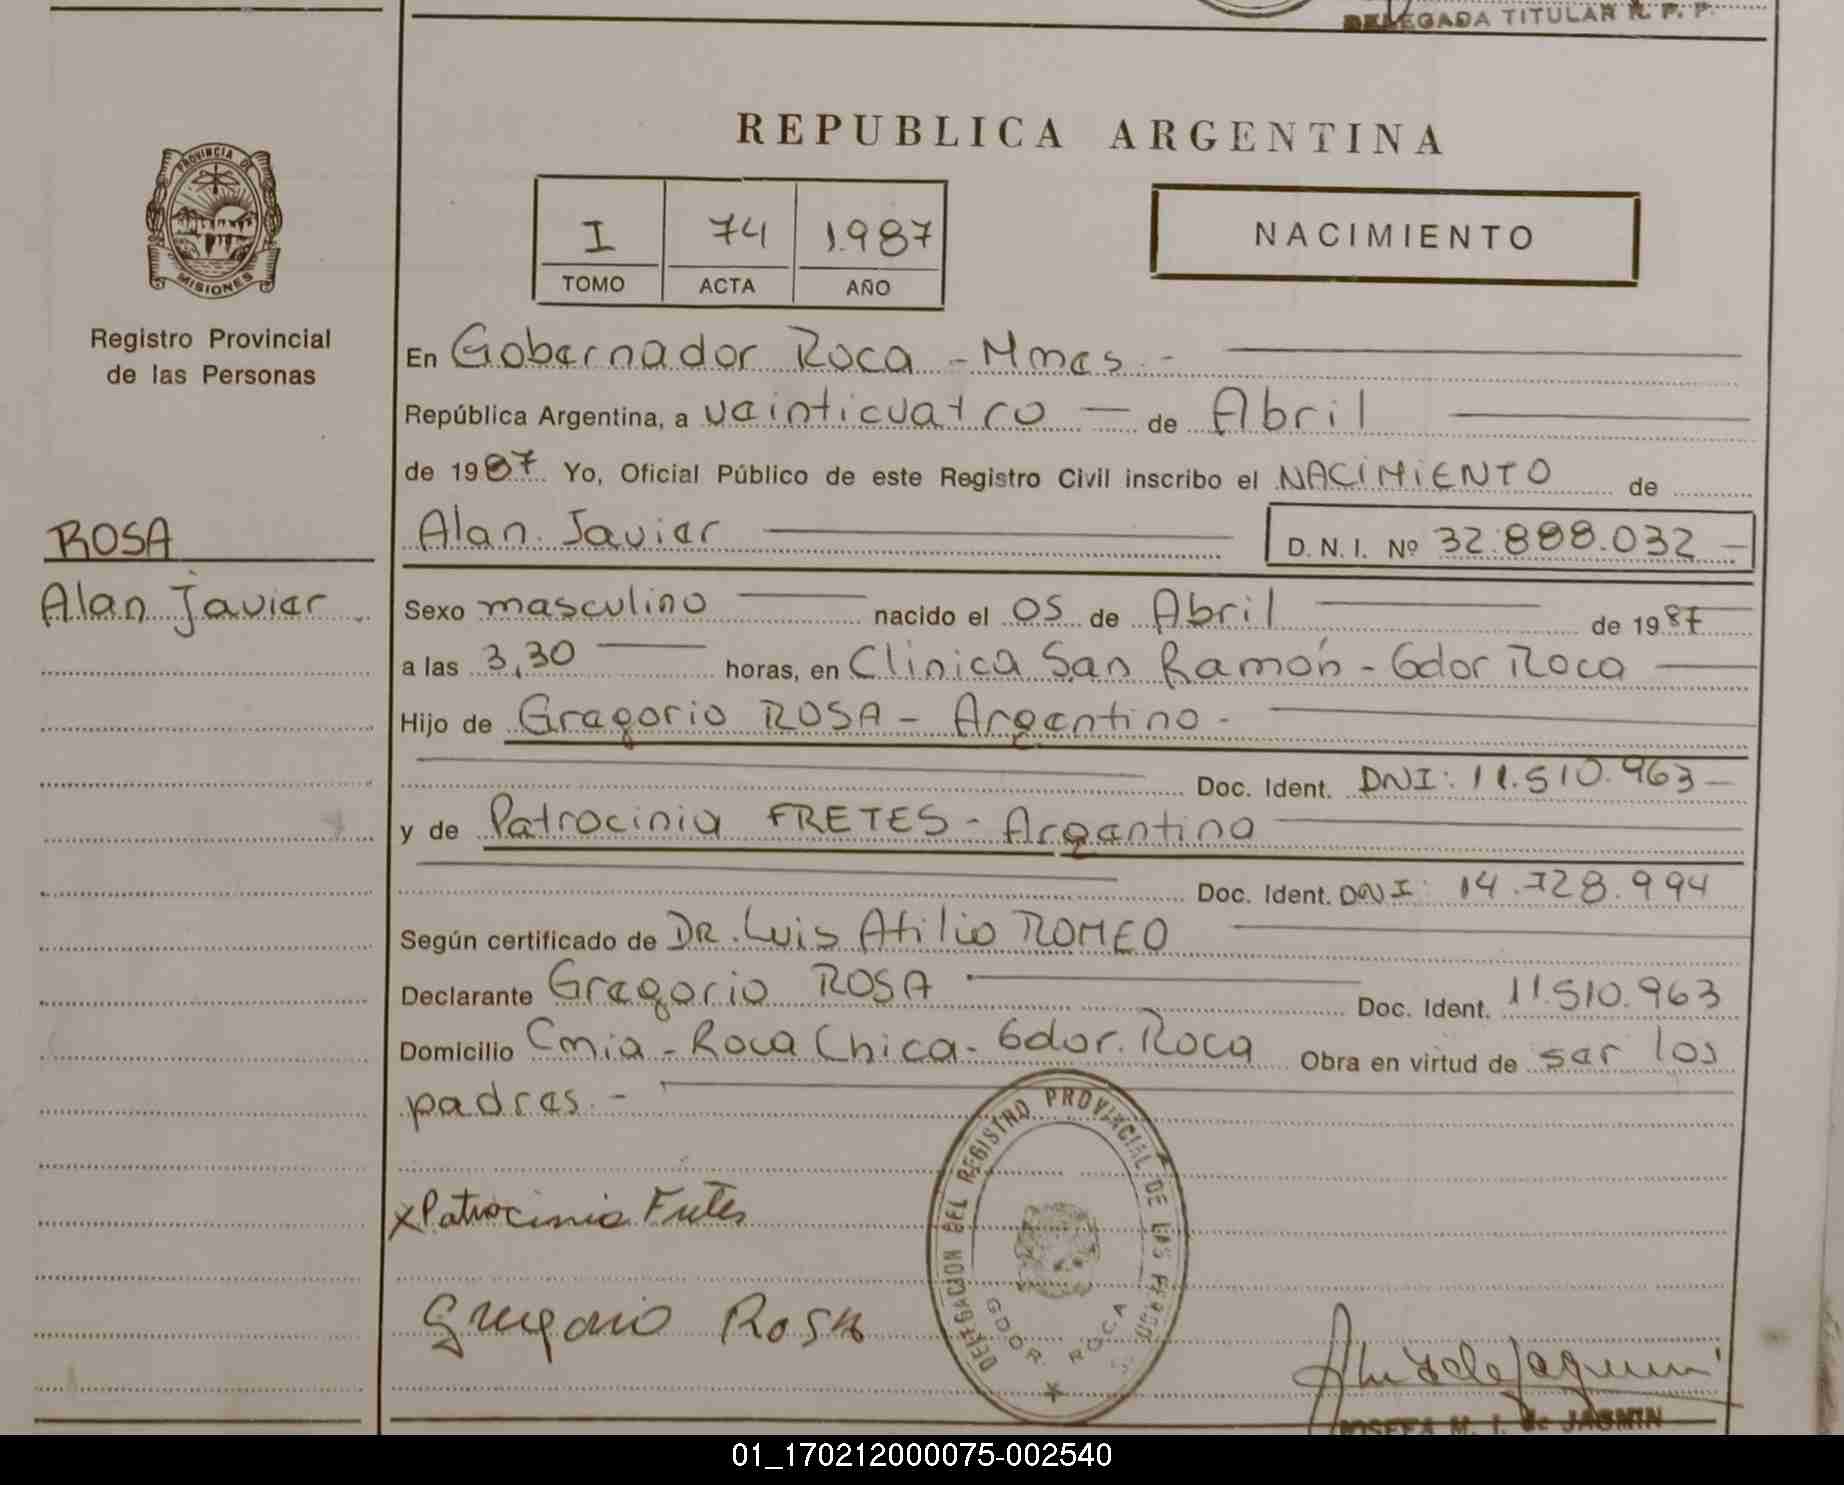 DELEGADA TITULAR R. P. P.
REPUBLICA ARGENTINA
PROVINCIA DE
MISIONES
Registro Provincial
de las Personas
I 74 1.987
TOMO ACTA AÑO
NACIMIENTO
En Gobernador Roca - Mnes. -
República Argentina, a veinticuatro — de Abril
de 1987 Yo, Oficial Público de este Registro Civil inscribo el NACIMIENTO de
Alan Javier D. N. I. Nº 32.888.032 —
ROSA
Alan Javier
Sexo masculino nacido el 05 de Abril de 1987
a las 3,30 horas, en Clinica San Ramón - Gdor Roca
Hijo de Gregorio ROSA - Argentino -
Doc. Ident. DNI: 11.510.963 —
y de Patrocinia FRETES - Argentina
Doc. Ident. DNI: 14.728.994
Según certificado de DR. Luis Atilio ROMEO
Declarante Gregorio ROSA Doc. Ident. 11.510.963
Domicilio Cnia - Roca Chica - Gdor. Roca Obra en virtud de ser los
padres. -
DELEGACION DEL REGISTRO PROVINCIAL DE LAS PERSONAS
GDOR. ROCA
x Patrocinia Fretes
Gregorio Rosa
JOSEFA M. I. de JASMIN
01_170212000075-002540